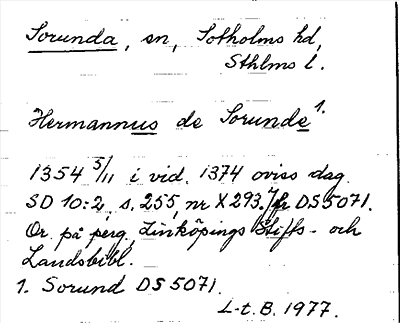 Sorunda, sn, Sotholms hd,
Sthlms l.
Hermannus de Sorunde 1.
1354 5/11 i vid. 1374 oviss dag.
SD 10:2, s. 255, nr X 293. Jfr DS 5071.
Or. på perg, Linköpings Stifts- och
Landsbibl.
1. Sorund DS 5071.
L-t. B. 1977.